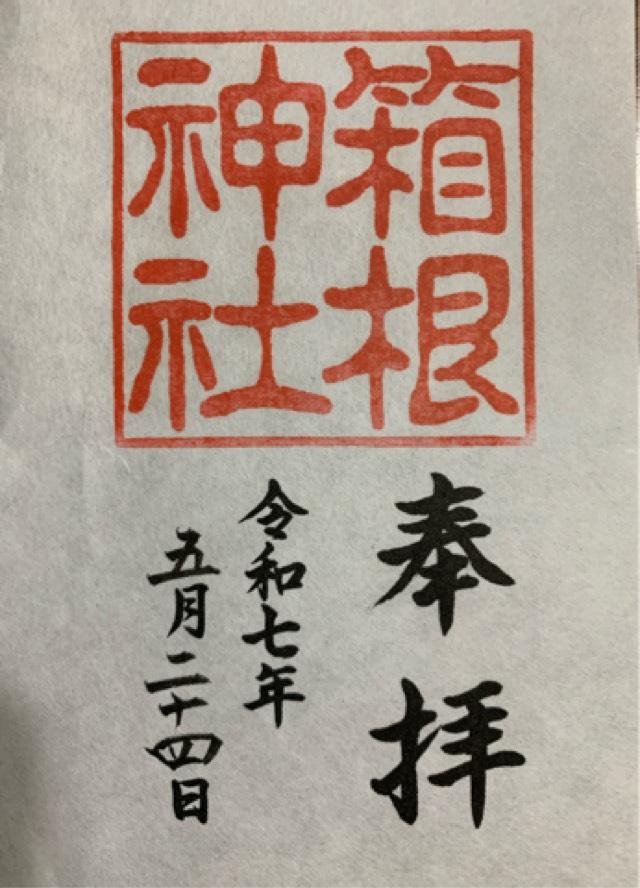 箱根
神社
奉拝
令和七年
五月二十四日